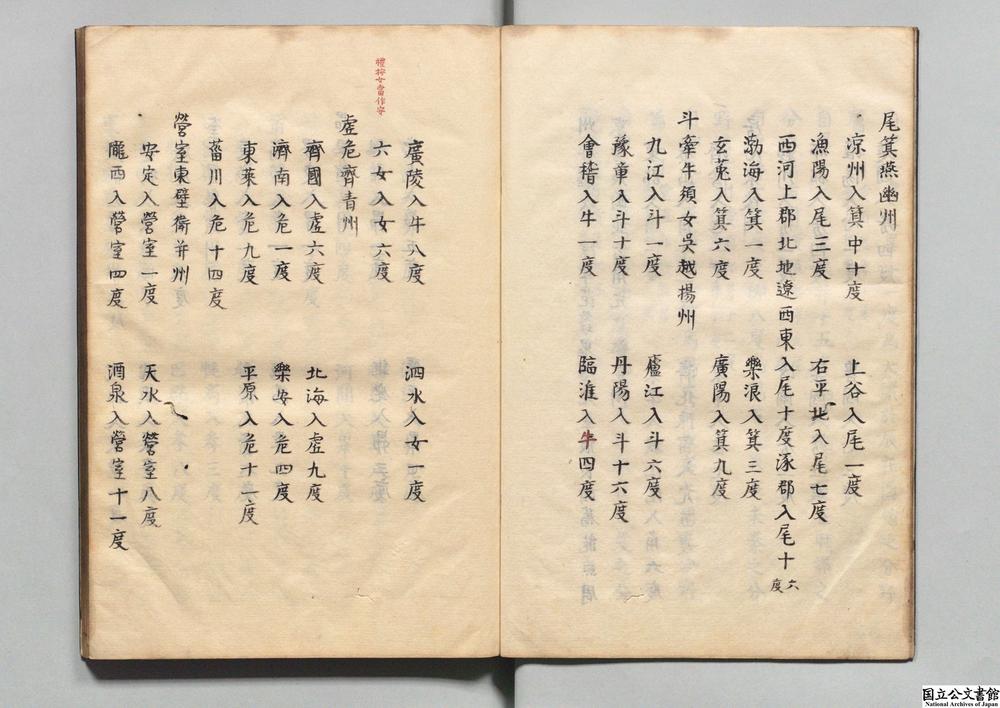 尾箕燕幽州
凉州入箕中十度 上谷入尾一度
漁陽入尾三度 右平北入尾七度
西河上郡北地遼西東入尾十度涿郡入尾十六度
渤海入箕一度 樂浪入箕三度
玄菟入箕六度 廣陽入箕九度
斗牽牛須女吳越揚州
九江入斗一度 廬江入斗六度
豫章入斗十度 丹陽入斗十六度
會稽入牛一度 臨淮入牛四度
廣陵入牛八度 泗水入女一度
禮按女當作安
六女入女六度
虛危齊青州
齊國入虛六度 北海入虛九度
濟南入危一度 樂安入危四度
東萊入危九度 平原入危十一度
菑川入危十四度
營室東壁衛并州
安定入營室一度 天水入營室八度
隴西入營室四度 酒泉入營室十一度
国立公文書館
National Archives of Japan